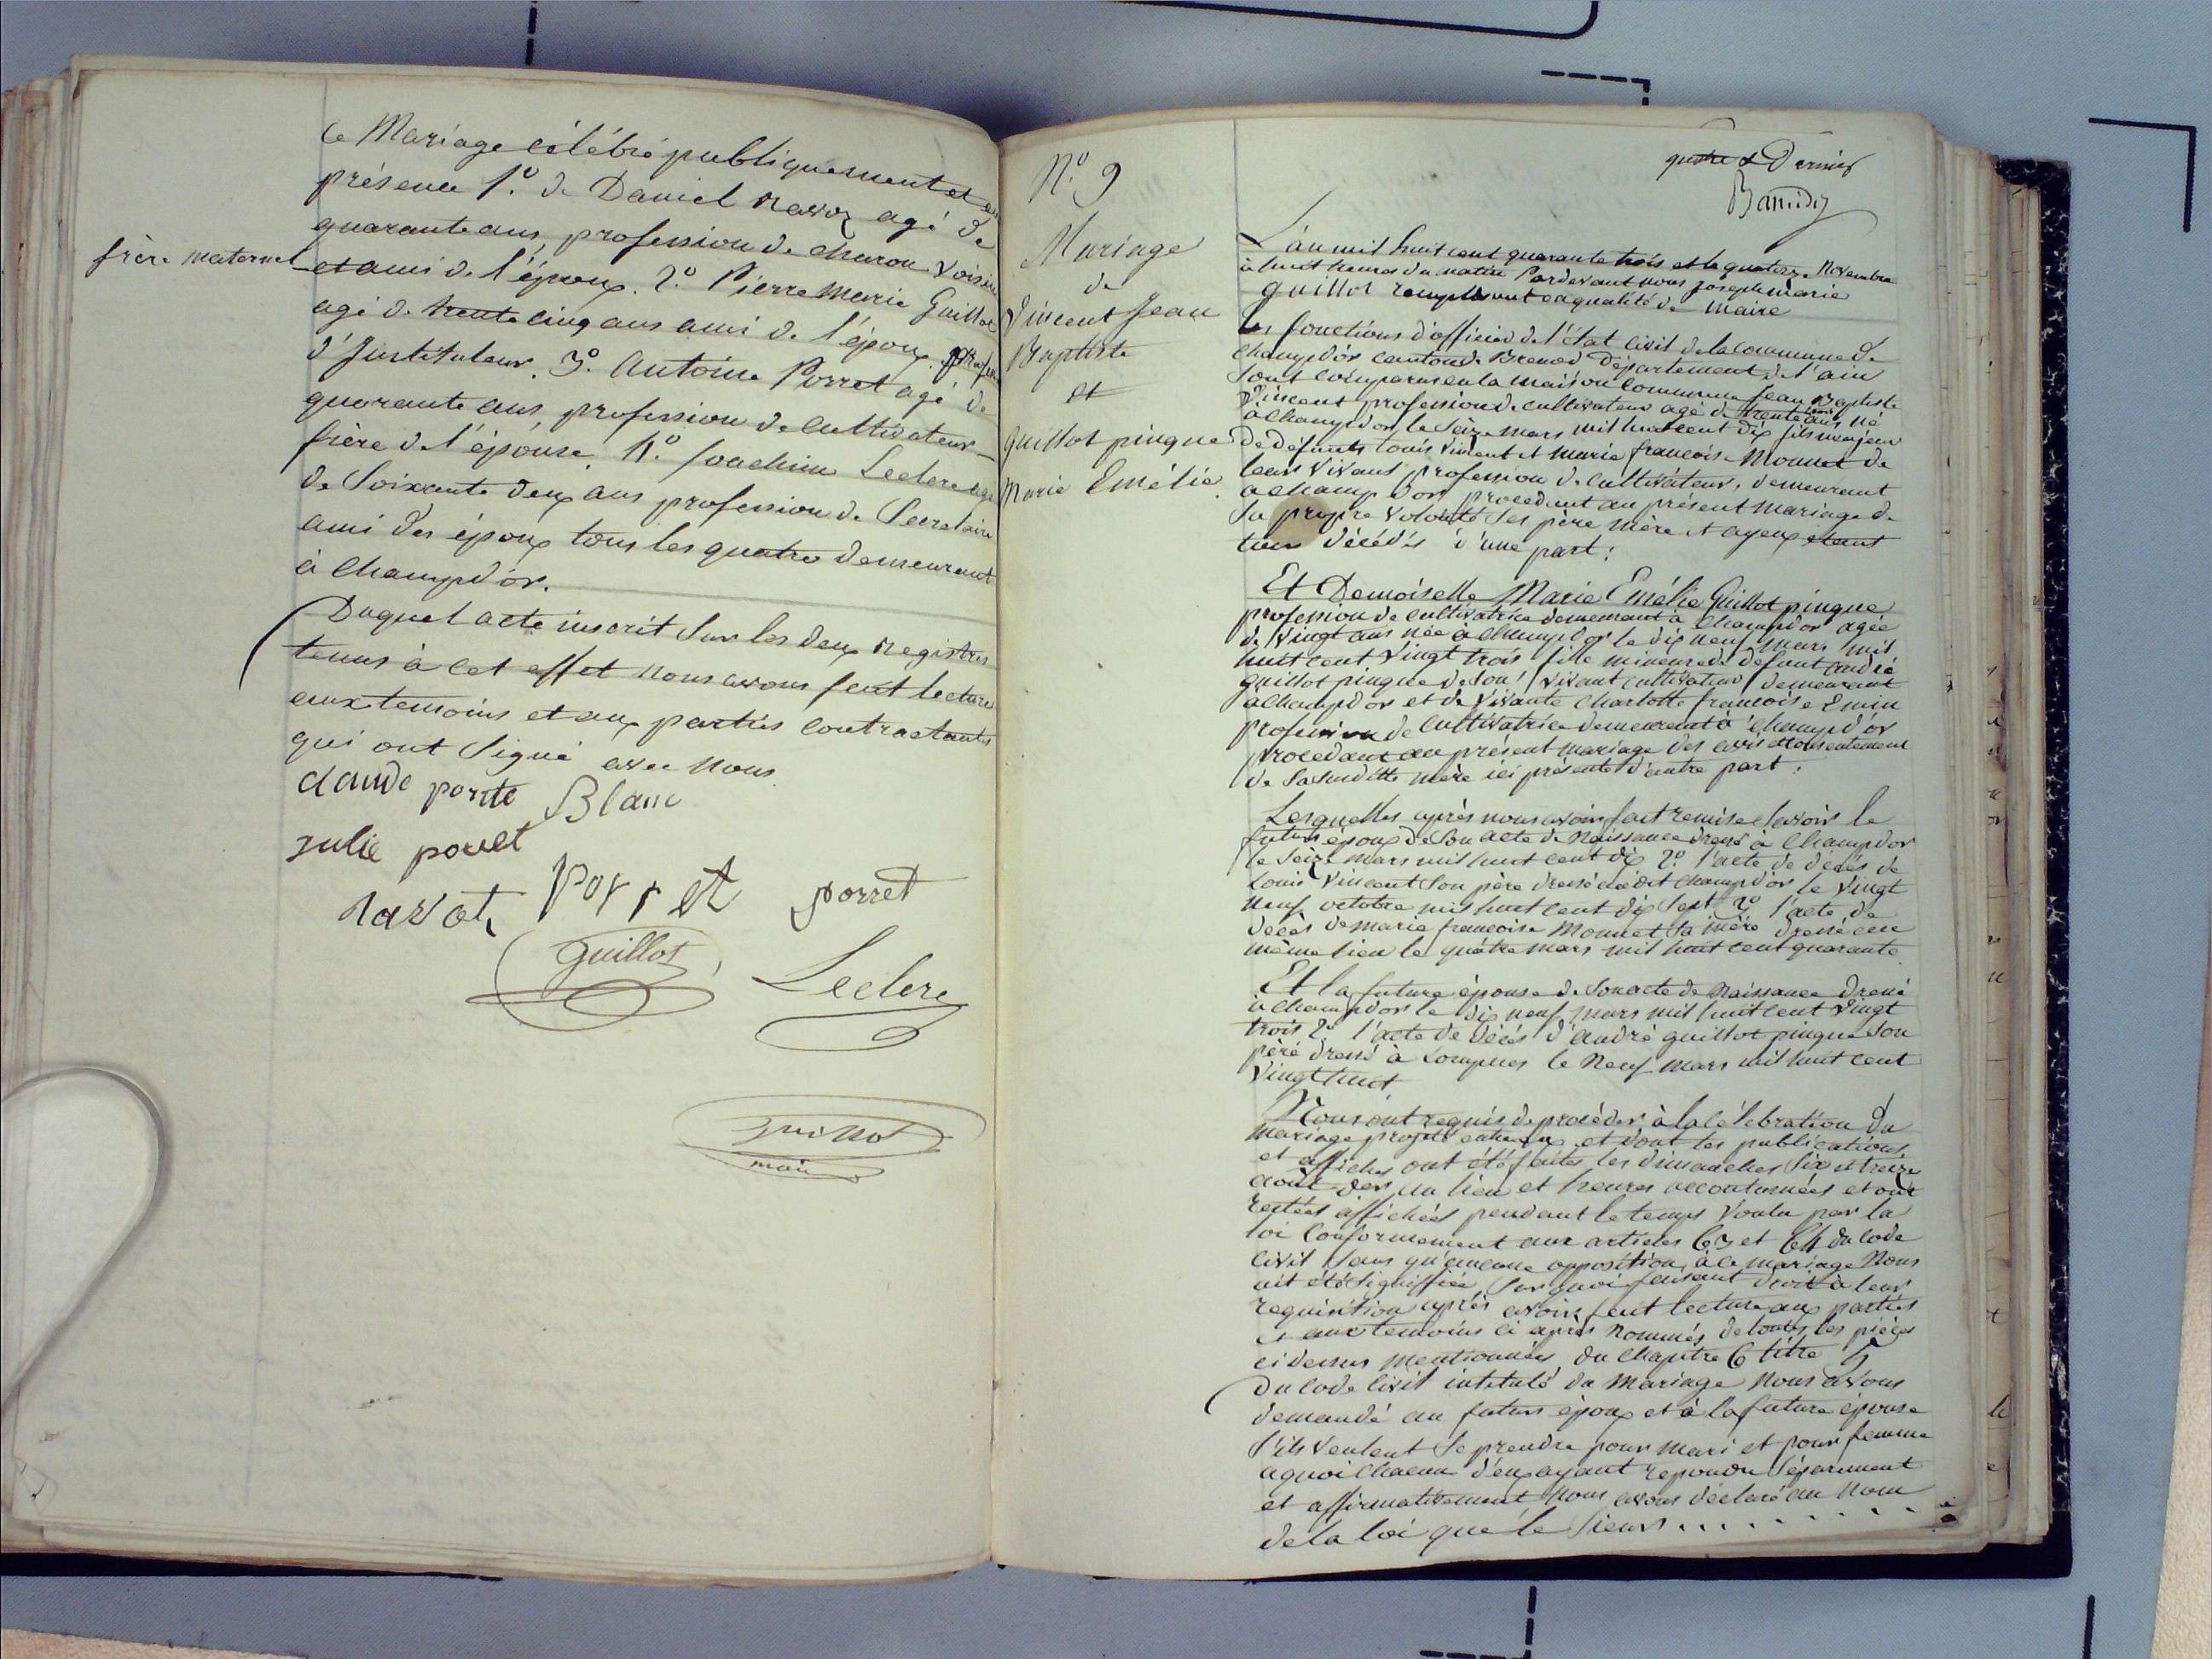 ce Mariage célébré publiquement et en
présence 1.º de Daniel Ravoz agé de
quarante ans, profession de charon voisin
frère maternel
et ami de l'époux. 2.º Pierre Marie Guillot
agé de trente cinq ans ami de l'époux profession
d'Instituteur. 3.º Antoine Porret agé de
quarante ans, profession de Cultivateur
frère de l'épouse. 4.º Joachim Leclerc agé
de Soixante deux ans profession de Secretaire
ami des époux tous les quatre demeurant
à Champdor.
Duquel acte inscrit Sur les deux registres
tenus à cet effet nous avons fait lecture
aux temoins et aux parties contractantes
qui ont Signé avec nous
claude ponte Blanc
Julie porret
ravot Porret porret
Guillot
Leclerc
Guillot
maire
Nº 9
Mariage
de
Vincent Jean
Baptiste
et
Guillot pingue
Marie Emélie
quatre & Dernier
L'an mil huit cent quarante trois et le quatorze Novembre
à huit heures du matin Pardevant nous Joseph Marie
Guillot remplissant en qualité de Maire
les fonctions d'officier de l'état civil de la commune de
Champdor canton de Brenod Département de l'ain
Sont comparus en la maison Commune Jean Baptiste
Vincent profession de cultivateur agé de trente trois ans né
à Champdor le Seize Mars mil huit cent dix fils majeur
de défunts Louis Vincent et Marie françoise Monnet de
leurs vivant profession de Cultivateurs, demeurant
à Champdor procedant au présent mariage de
Sa propre volonté Ses père mère et ayeux étant
tous décédés d'une part:
Et Demoiselle Marie Emélie Guillot pingue
profession de cultivatrice demeurant à Champdor agée
de vingt ans née à Champdor le dix neuf mars mil
huit cent vingt trois fille mineure de défunt andré
guillot pingue de Son vivant cultivateur demeurant
à Champdor et de vivante Charlotte françoise Emin
profession de Cultivatrice demeurant à Champdor
procedant au présent mariage des avis et consentement
de Sa Susditte mère ici présente d'autre part.
Lesquelles après nous avoir fait remise Savoir le
futur époux de Son acte de Naissance dressé à Champdor
le Seize Mars mil huit cent dix 2.º l'acte de décès de
Louis Vincent Son père dressé audit Champdor le vingt
neuf octobre mil huit cent dix Sept 3º l'acte de
décès de marie francoise Monnet Sa mère dressé au
même lieu le quatre mars mil huit cent quarante
Et la future épouse de Son acte de Naissance dressé
à Champdor le dix neuf mars mil huit cent vingt
trois 2º l'acte de décès d'andré guillot pingue Son
père dressé à Lompnes le Neuf Mars mil huit cent
vingt huit
Nous ont requis de procéder à la célébration du
mariage projetté entre eux et dont les publications
et affiches ont été faites les dimanches Six et treize
août der. au lieu et heures accoutumées et ont
restées affichées pendant le temps voulu par la
loi Conformement aux articles 63 et 64 du Code
Civil Sans qu'aucune opposition à ce mariage Nous
ait été Signiffiée, Sur quoi faisant droit à leur
requisition après avoir fait lecture aux parties
et aux temoins ci après Nommés de toutes les pièces
ci dessus mentionnées du Chapitre 6 titre 5
Du Code Civil intitulé du mariage Nous avons
demandé au futur époux et à la future épouse
S'ils veulent Se prendre pour mari et pour femme
a quoi Chacun d'eux ayant repondu Séparement
et affirmativement Nous avons déclaré au Nom
de la loi que le Sieur . . . . . . . . . .